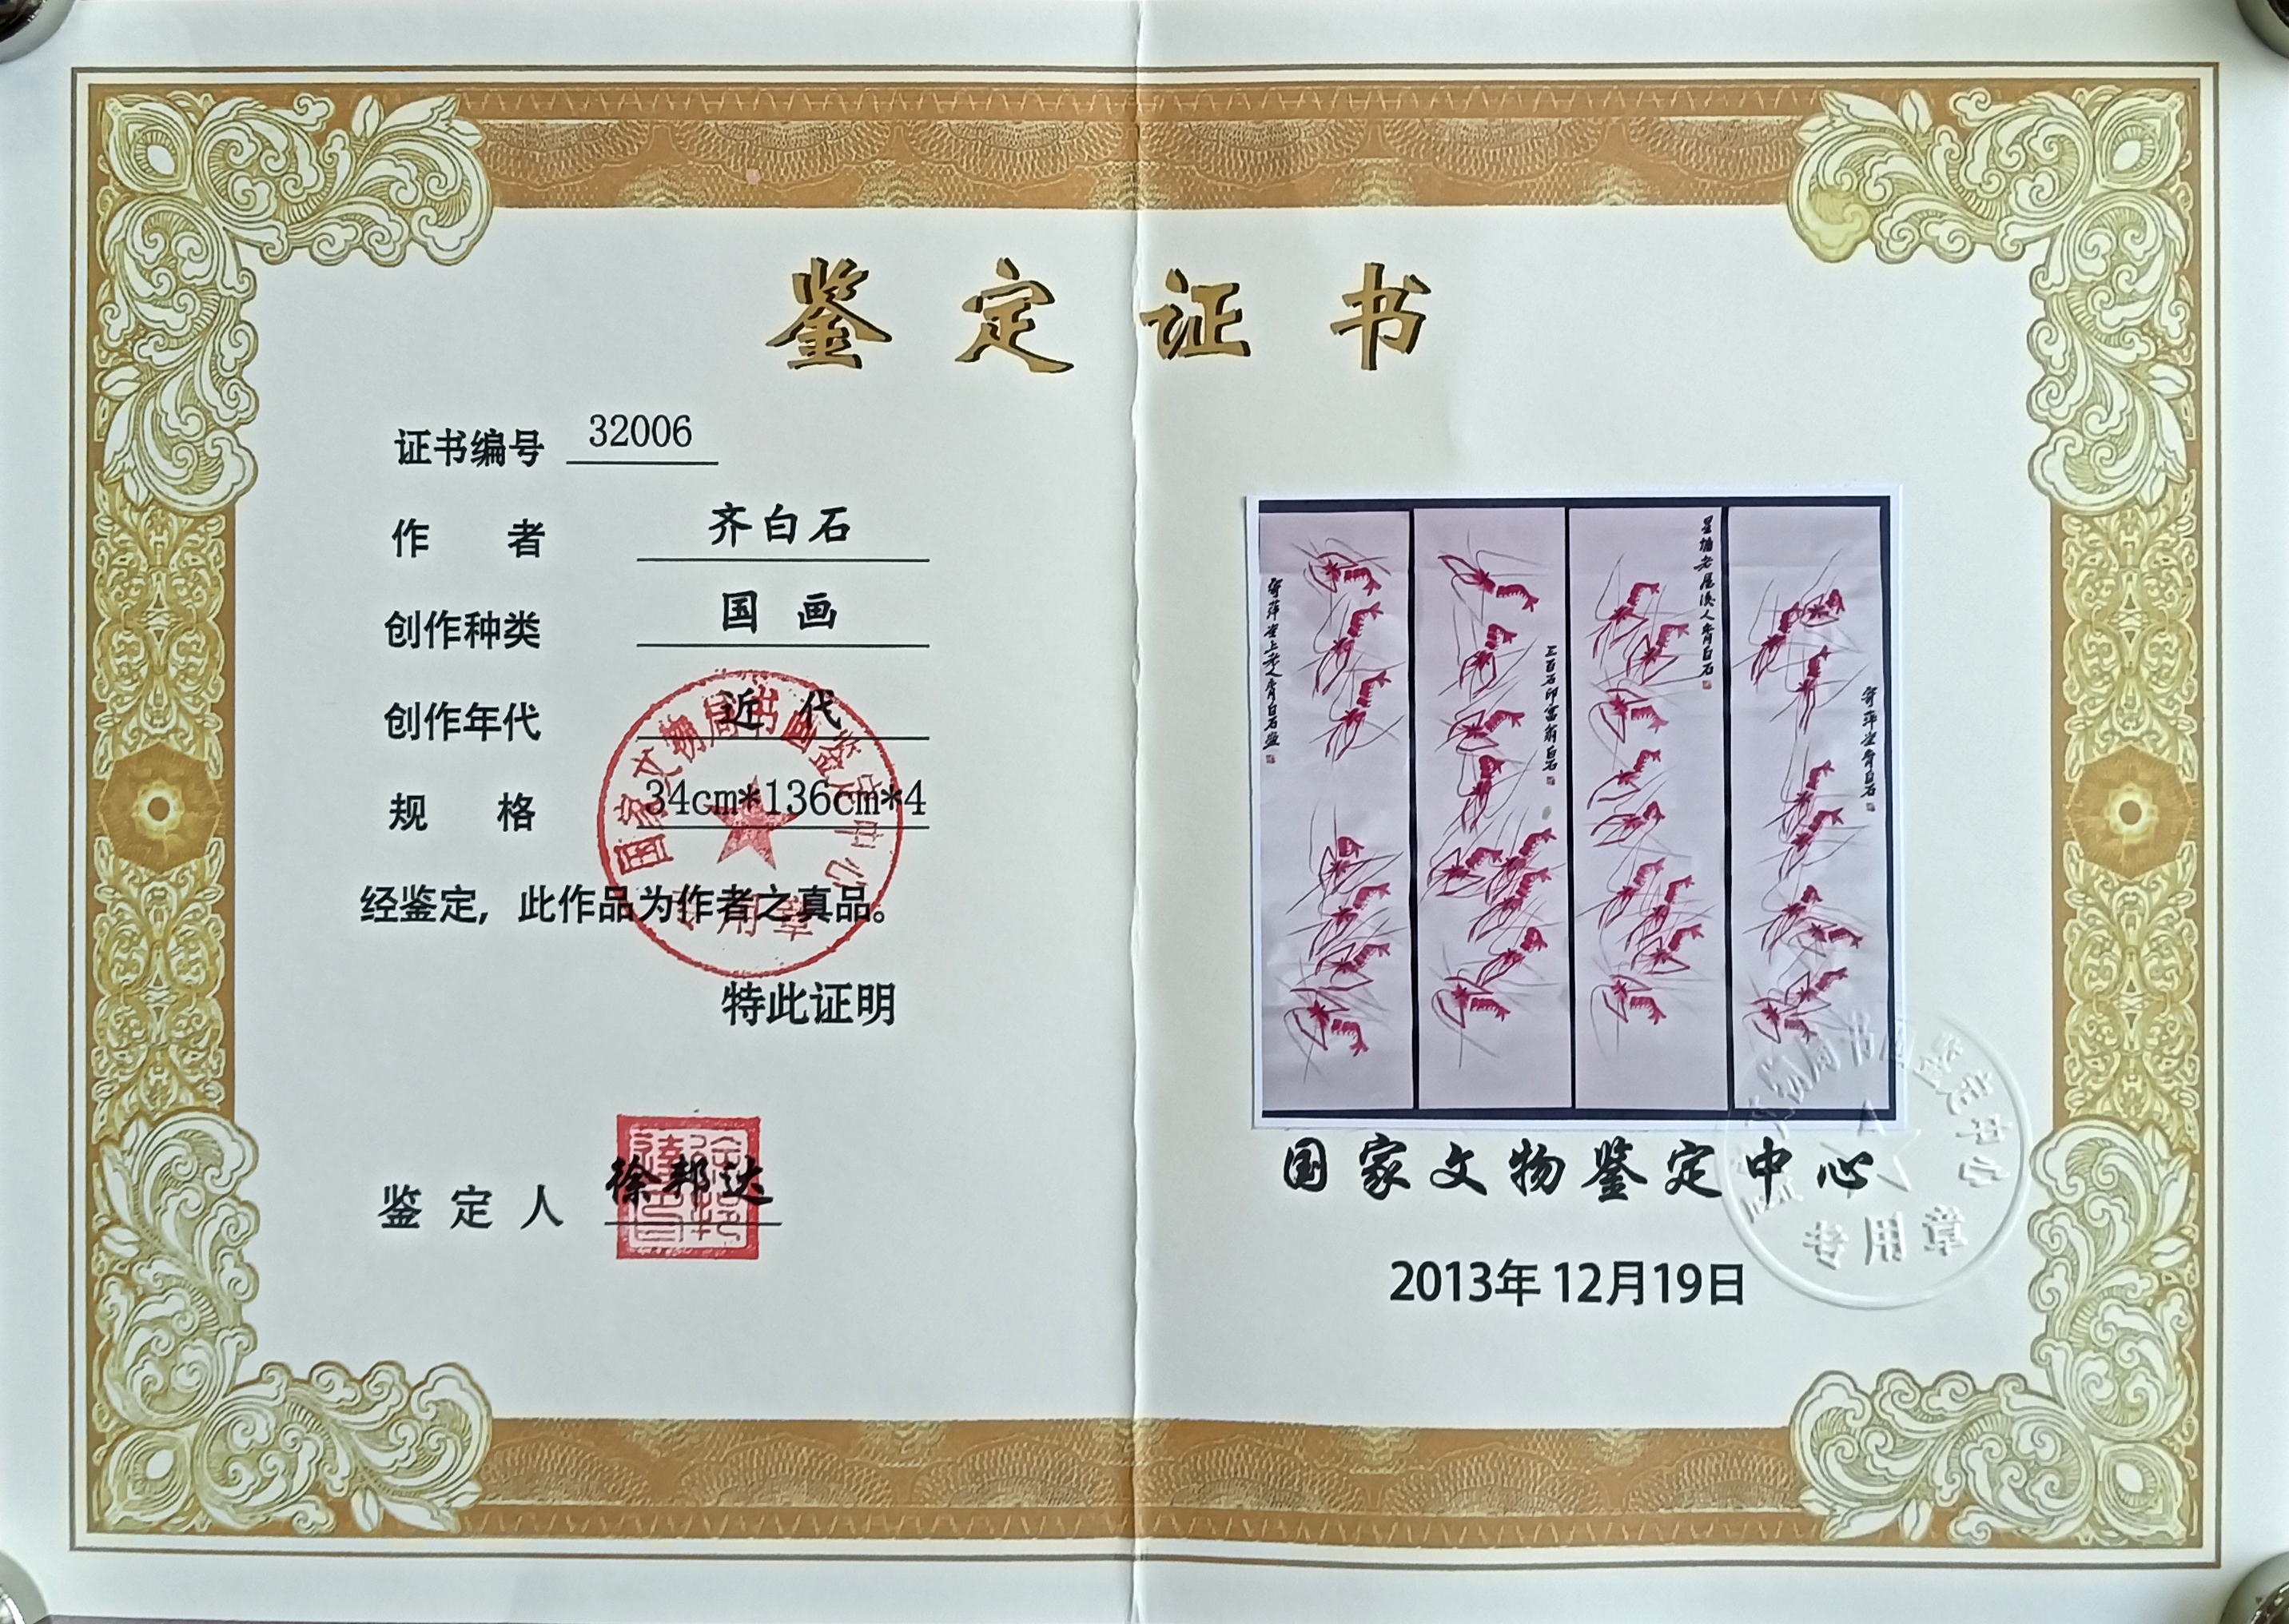 鉴定证书
证书编号 32006
作者 齐白石
创作种类 国画
创作年代 近代
规格 34cm*136cm*4
经鉴定，此作品为作者之真品。
特此证明
鉴定人 徐邦达
国家文物局书画鉴定中心
专用章
寄萍堂上老人齐白石
三百石印富翁白石
星塘老屋后人齐白石
寄萍堂齐白石
国家文物鉴定中心
2013年12月19日
文物局书画鉴定中心
专用章